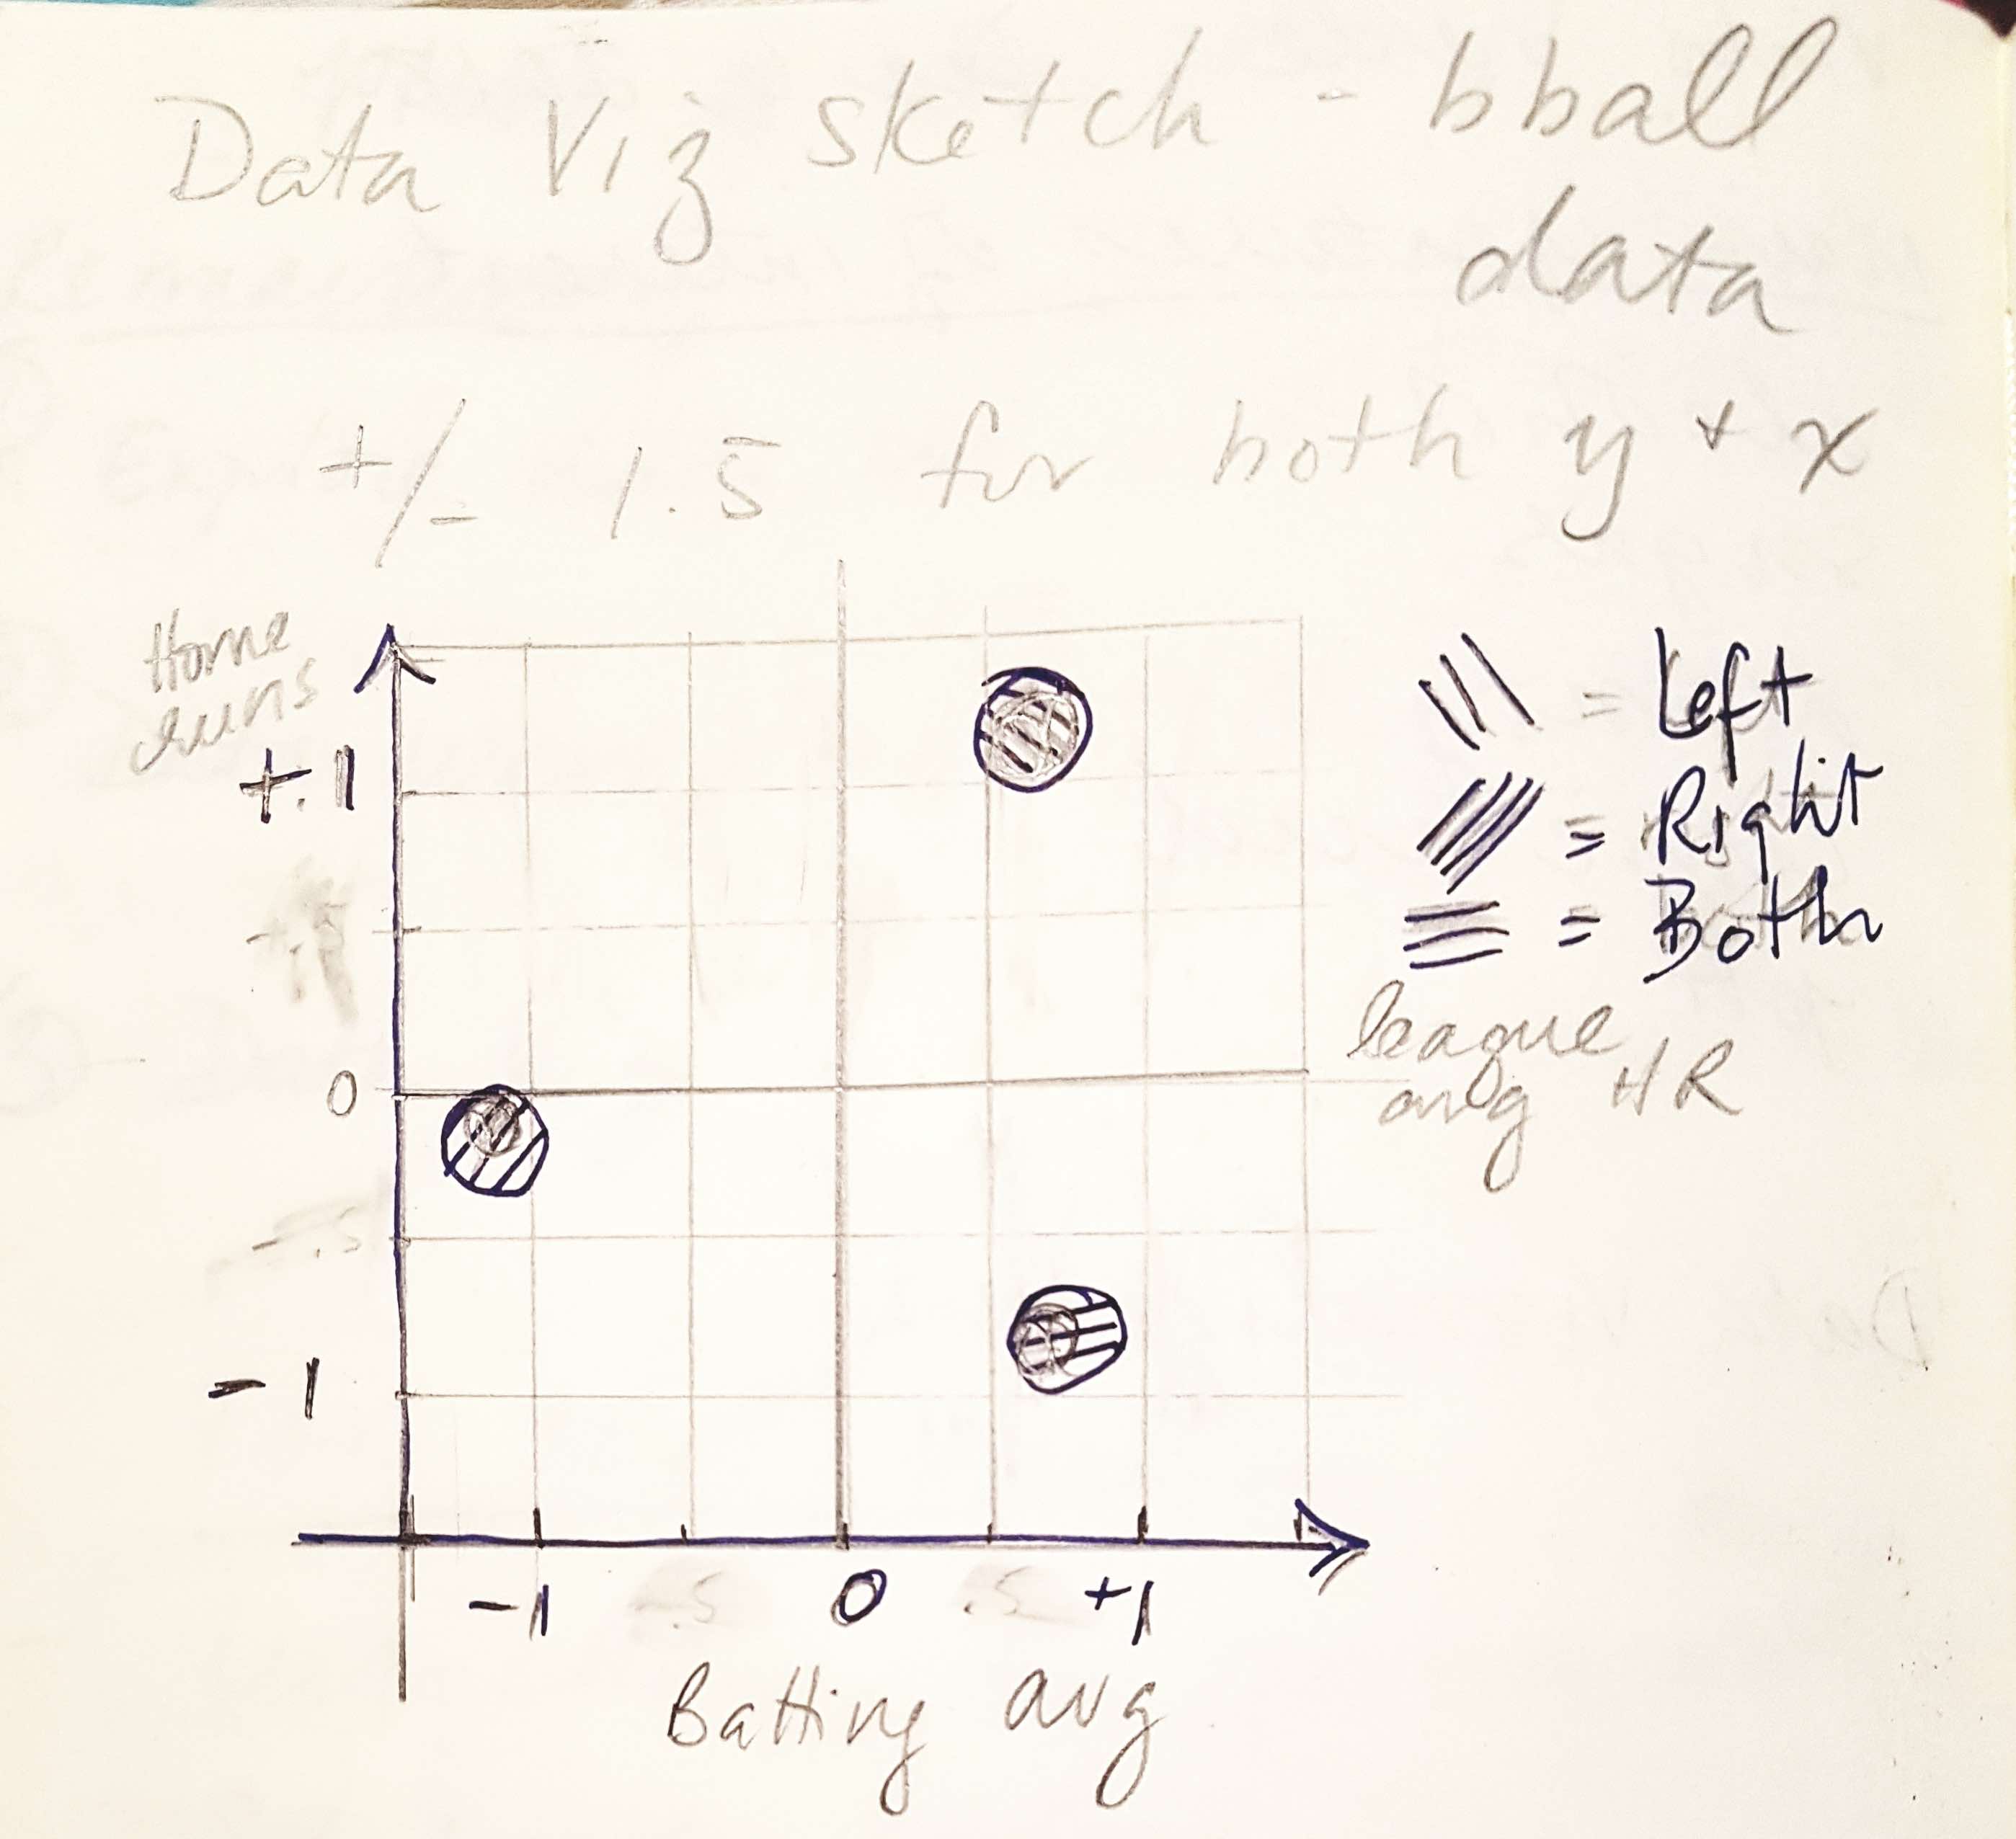 Data Viz sketch - bball
data
+/- 1.5 for both y + x
Home
runs
+.1
0
-.5
-1
= Left
= Right
= Both
league
avg HR
-1 -.5 0 .5 +1
Batting avg